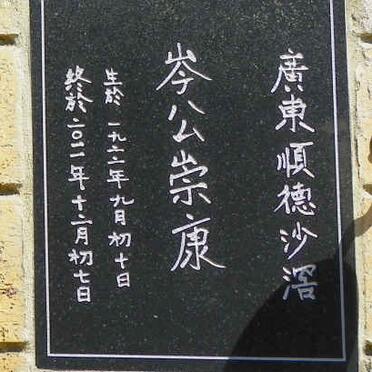 廣東順德沙滘
岑公崇康
生於一九二二年九月初十日
終於二〇二一年十二月初七日